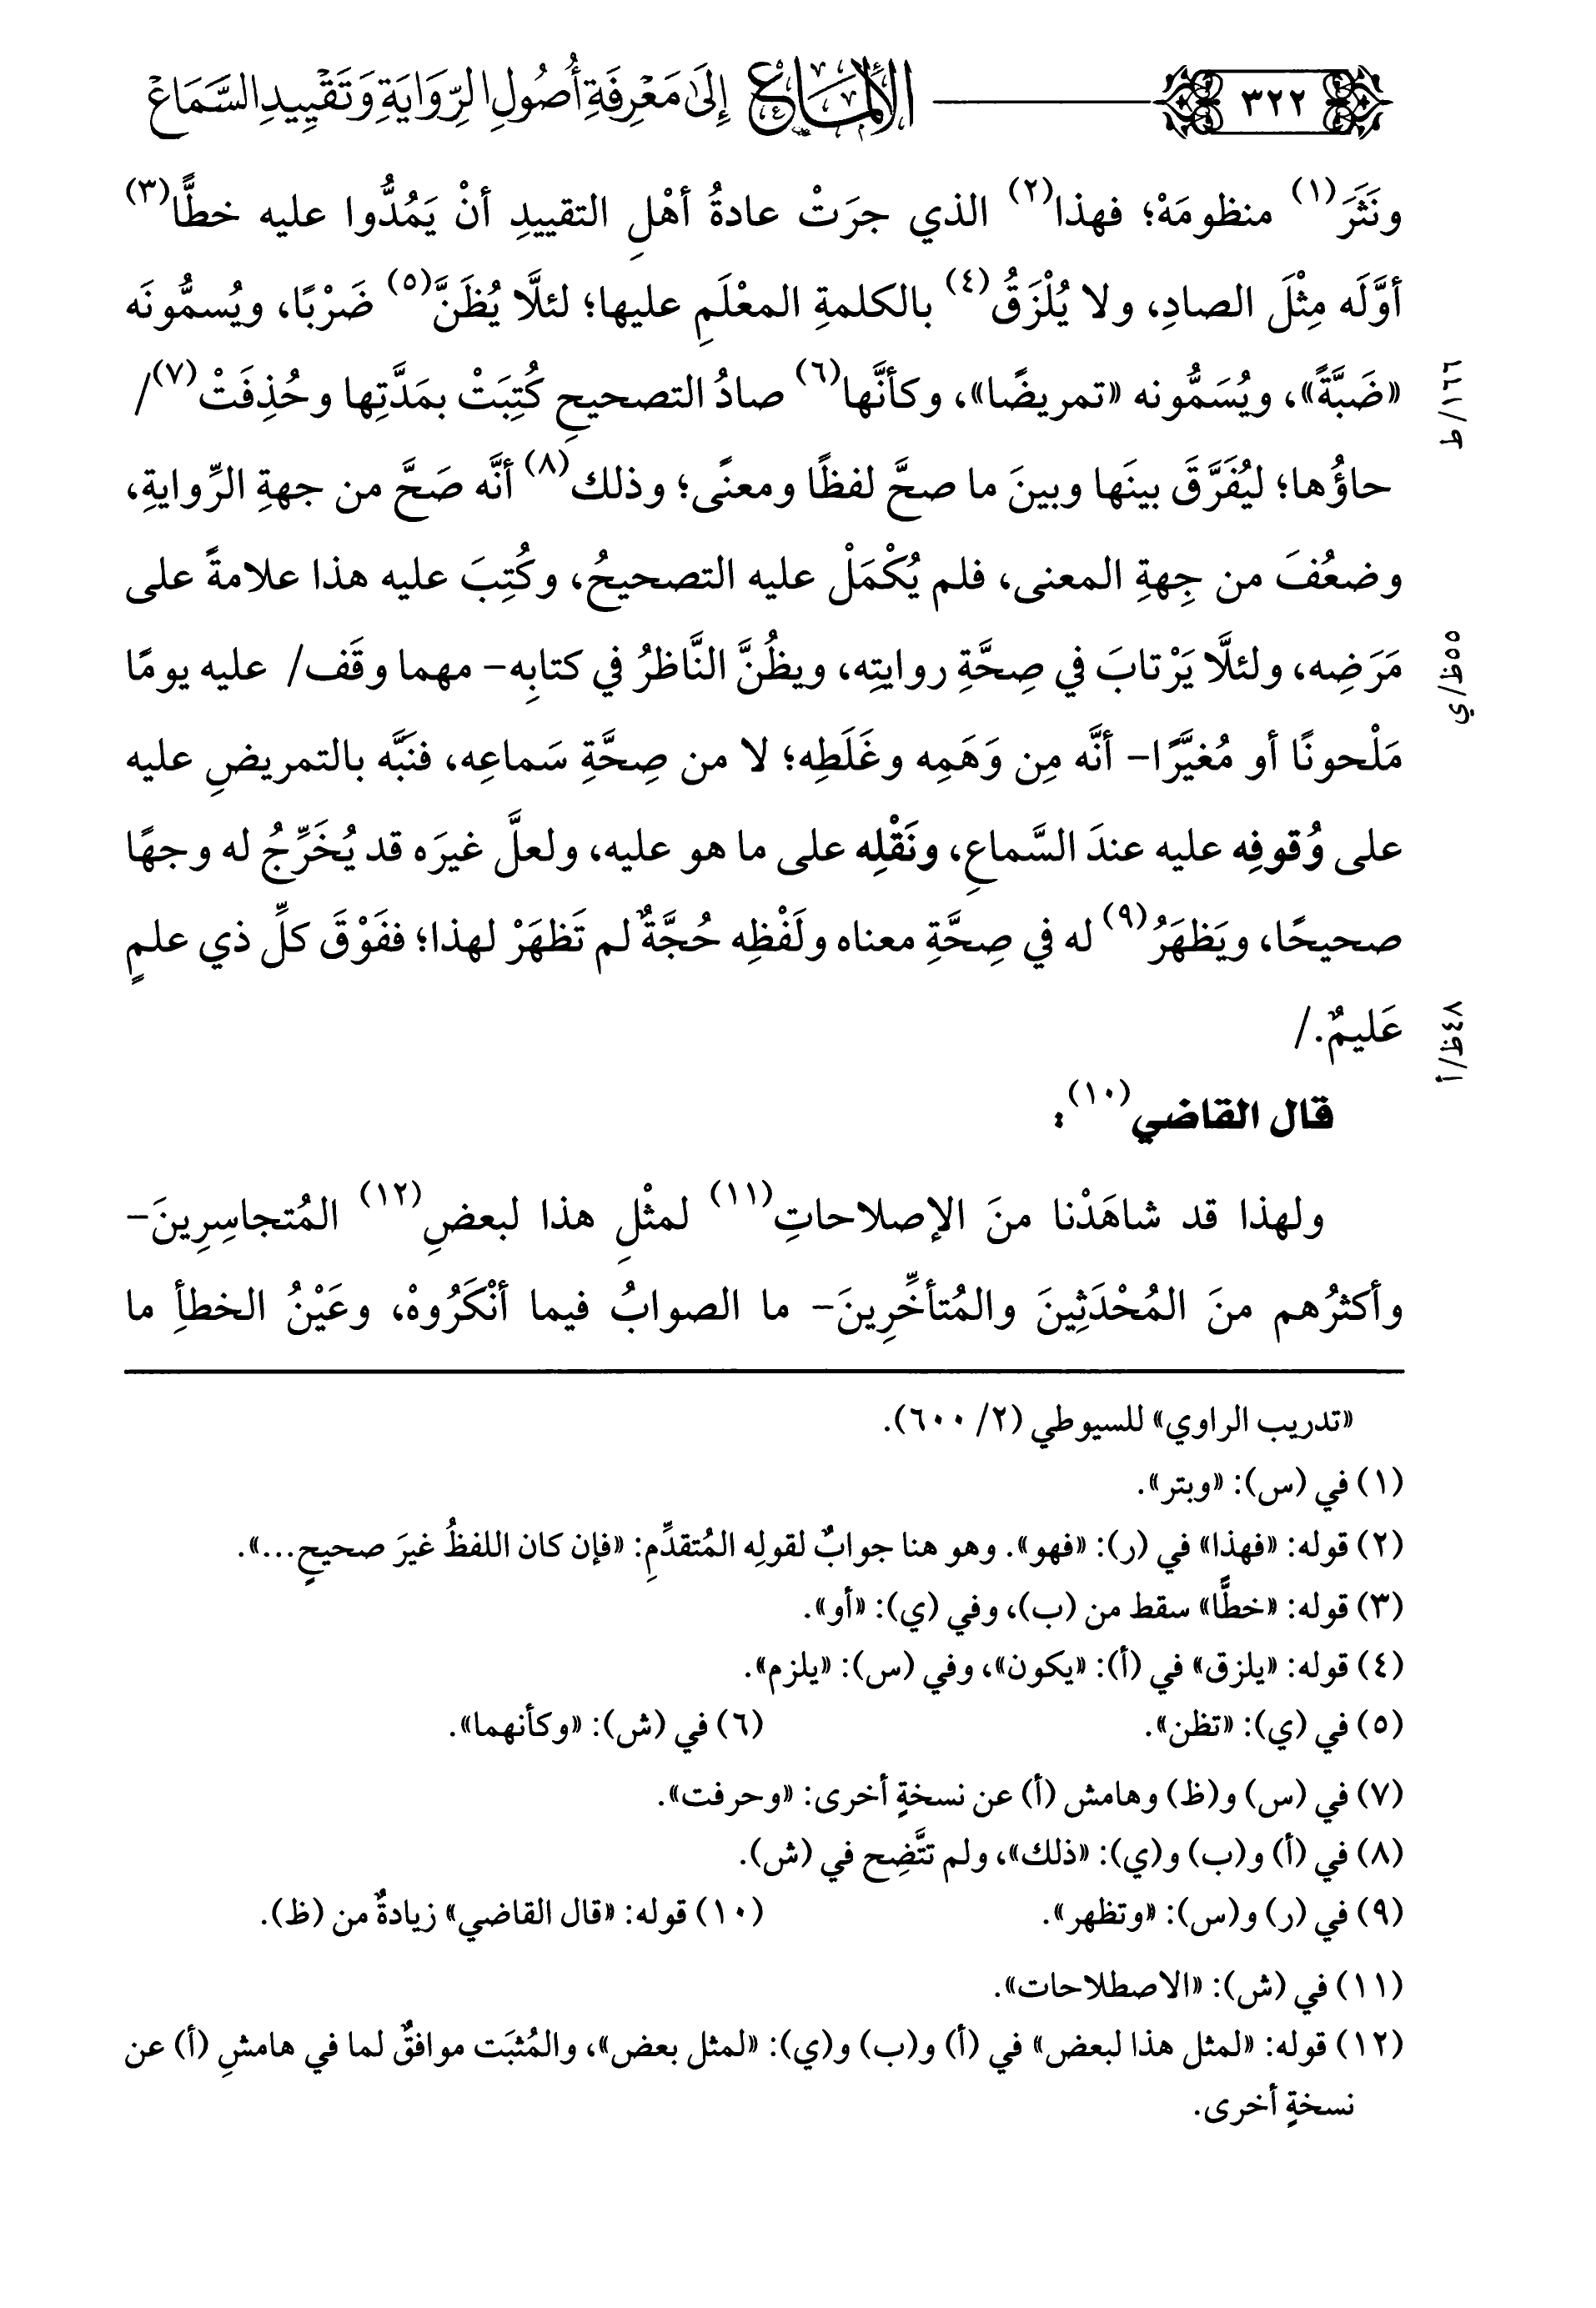 ٣٢٢
الإلماع إِلَى مَعْرِفَةِ أُصُولِ الرِّوَايَةِ وَتَقْيِيدِ السَّمَاعِ
ونَثَرَ(١) منظومَهْ؛ فهذا(٢) الذي جرَتْ عادةُ أهْلِ التقييدِ أنْ يَمُدُّوا عليه خطًّا(٣)
أوَّلَه مِثْلَ الصادِ، ولا يُلْزَقُ(٤) بالكلمةِ المعْلَمِ عليها؛ لئلَّا يُظَنَّ(٥) ضَرْبًا، ويُسمُّونَه
«ضَبَّةً»، ويُسَمُّونه «تمريضًا»، وكأنَّها(٦) صادُ التصحيحِ كُتِبَتْ بمَدَّتِها وحُذِفَتْ(٧)/
حاؤُها؛ ليُفَرَّقَ بينَها وبينَ ما صحَّ لفظًا ومعنًى؛ وذلك(٨) أنَّه صَحَّ من جهةِ الرِّوايةِ،
وضعُفَ من جِهةِ المعنى، فلم يُكْمَلْ عليه التصحيحُ، وكُتِبَ عليه هذا علامةً على
٥٥ظ/ي
مَرَضِه، ولئلَّا يَرْتابَ في صِحَّةِ روايتِه، ويظُنَّ النَّاظرُ في كتابِه- مهما وقَف/ عليه يومًا
مَلْحونًا أو مُغيَّرًا- أنَّه مِن وَهَمِه وغَلَطِه؛ لا من صِحَّةِ سَماعِه، فنَبَّه بالتمريضِ عليه
على وُقوفِه عليه عندَ السَّماعِ، ونَقْلِه على ما هو عليه، ولعلَّ غيرَه قد يُخَرِّجُ له وجهًا
صحيحًا، ويَظهَرُ(٩) له في صِحَّةِ معناه ولَفْظِه حُجَّةٌ لم تَظهَرْ لهذا؛ ففَوْقَ كلِّ ذي علمٍ
٤٨ظ/أ
عَليمٌ./
قال القاضي(١٠):
ولهذا قد شاهَدْنا منَ الإصلاحاتِ(١١) لمثْلِ هذا لبعضِ(١٢) المُتجاسِرِينَ-
وأكثرُهم منَ المُحْدَثِينَ والمُتأخِّرِينَ- ما الصوابُ فيما أنْكَرُوهْ، وعَيْنُ الخطأِ ما
«تدريب الراوي» للسيوطي (٢/ ٦٠٠).
(١) في (س): «وبتر».
(٢) قوله: «فهذا» في (ر): «فهو». وهو هنا جوابٌ لقولِه المُتقدِّمِ: «فإن كان اللفظُ غيرَ صحيحٍ...».
(٣) قوله: «خطًّا» سقط من (ب)، وفي (ي): «أو».
(٤) قوله: «يلزق» في (أ): «يكون»، وفي (س): «يلزم».
(٥) في (ي): «تظن». (٦) في (ش): «وكأنهما».
(٧) في (س) و(ظ) وهامش (أ) عن نسخةٍ أخرى: «وحرفت».
(٨) في (أ) و(ب) و(ي): «ذلك»، ولم تتَّضِح في (ش).
(٩) في (ر) و(س): «وتظهر». (١٠) قوله: «قال القاضي» زيادةٌ من (ظ).
(١١) في (ش): «الاصطلاحات».
(١٢) قوله: «لمثل هذا لبعض» في (أ) و(ب) و(ي): «لمثل بعض»، والمُثبَت موافقٌ لما في هامشِ (أ) عن
نسخةٍ أخرى.